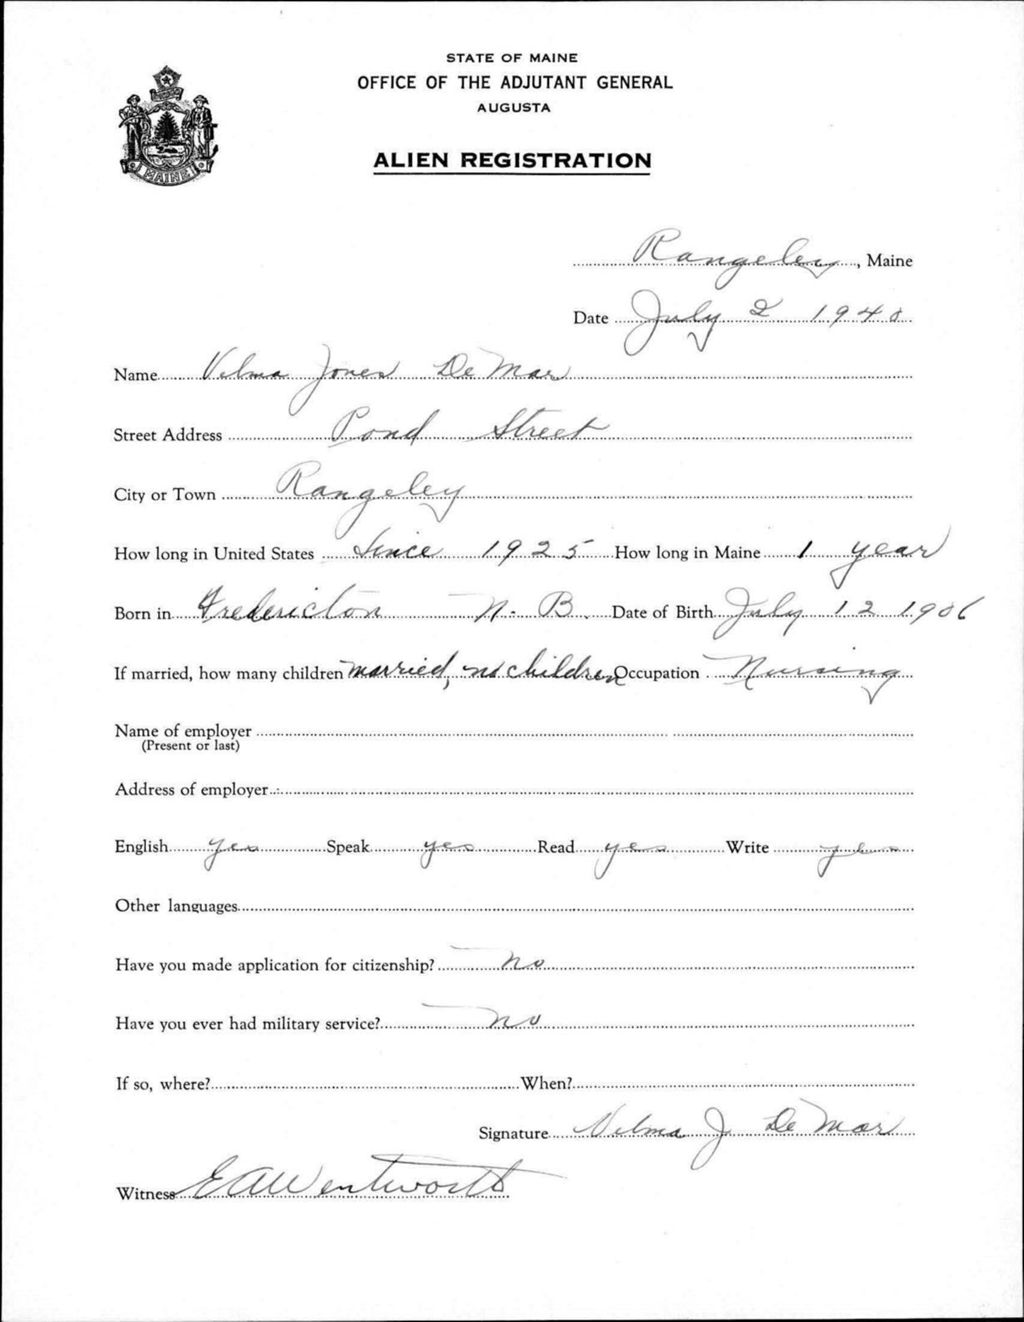 STATE OF MAINE
OFFICE OF THE ADJUTANT GENERAL
AUGUSTA
ALIEN REGISTRATION
MAINE
Rangeley, Maine
Date July 2 1940
Name Vilma Jones De Mar
Street Address Pond Street
City or Town Rangeley
How long in United States Since 1925 How long in Maine 1 year
Born in Fredericton N. B. Date of Birth July 12 1906
If married, how many children married, no children Occupation Nursing
Name of employer
(Present or last)
Address of employer
English yes Speak yes Read yes Write yes
Other languages
Have you made application for citizenship? no
Have you ever had military service? no
If so, where? When?
Signature Vilma J. De Mar
Witness E A Wentworth